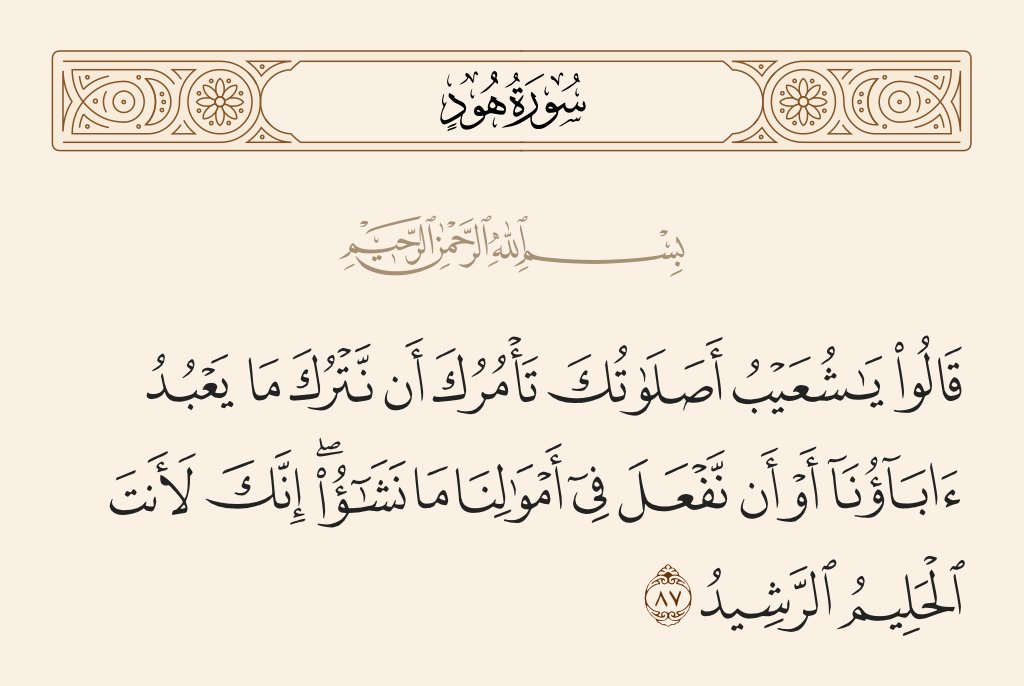 سُورَةُ هُودٍ
بِسْمِ ٱللَّهِ ٱلرَّحْمَٰنِ ٱلرَّحِيمِ
قَالُوا۟ يَـٰشُعَيْبُ أَصَلَوٰتُكَ تَأْمُرُكَ أَن نَّتْرُكَ مَا يَعْبُدُ
ءَابَآؤُنَآ أَوْ أَن نَّفْعَلَ فِىٓ أَمْوَٰلِنَا مَا نَشَـٰٓؤُا۟ ۖ إِنَّكَ لَأَنتَ
ٱلْحَلِيمُ ٱلرَّشِيدُ ٨٧